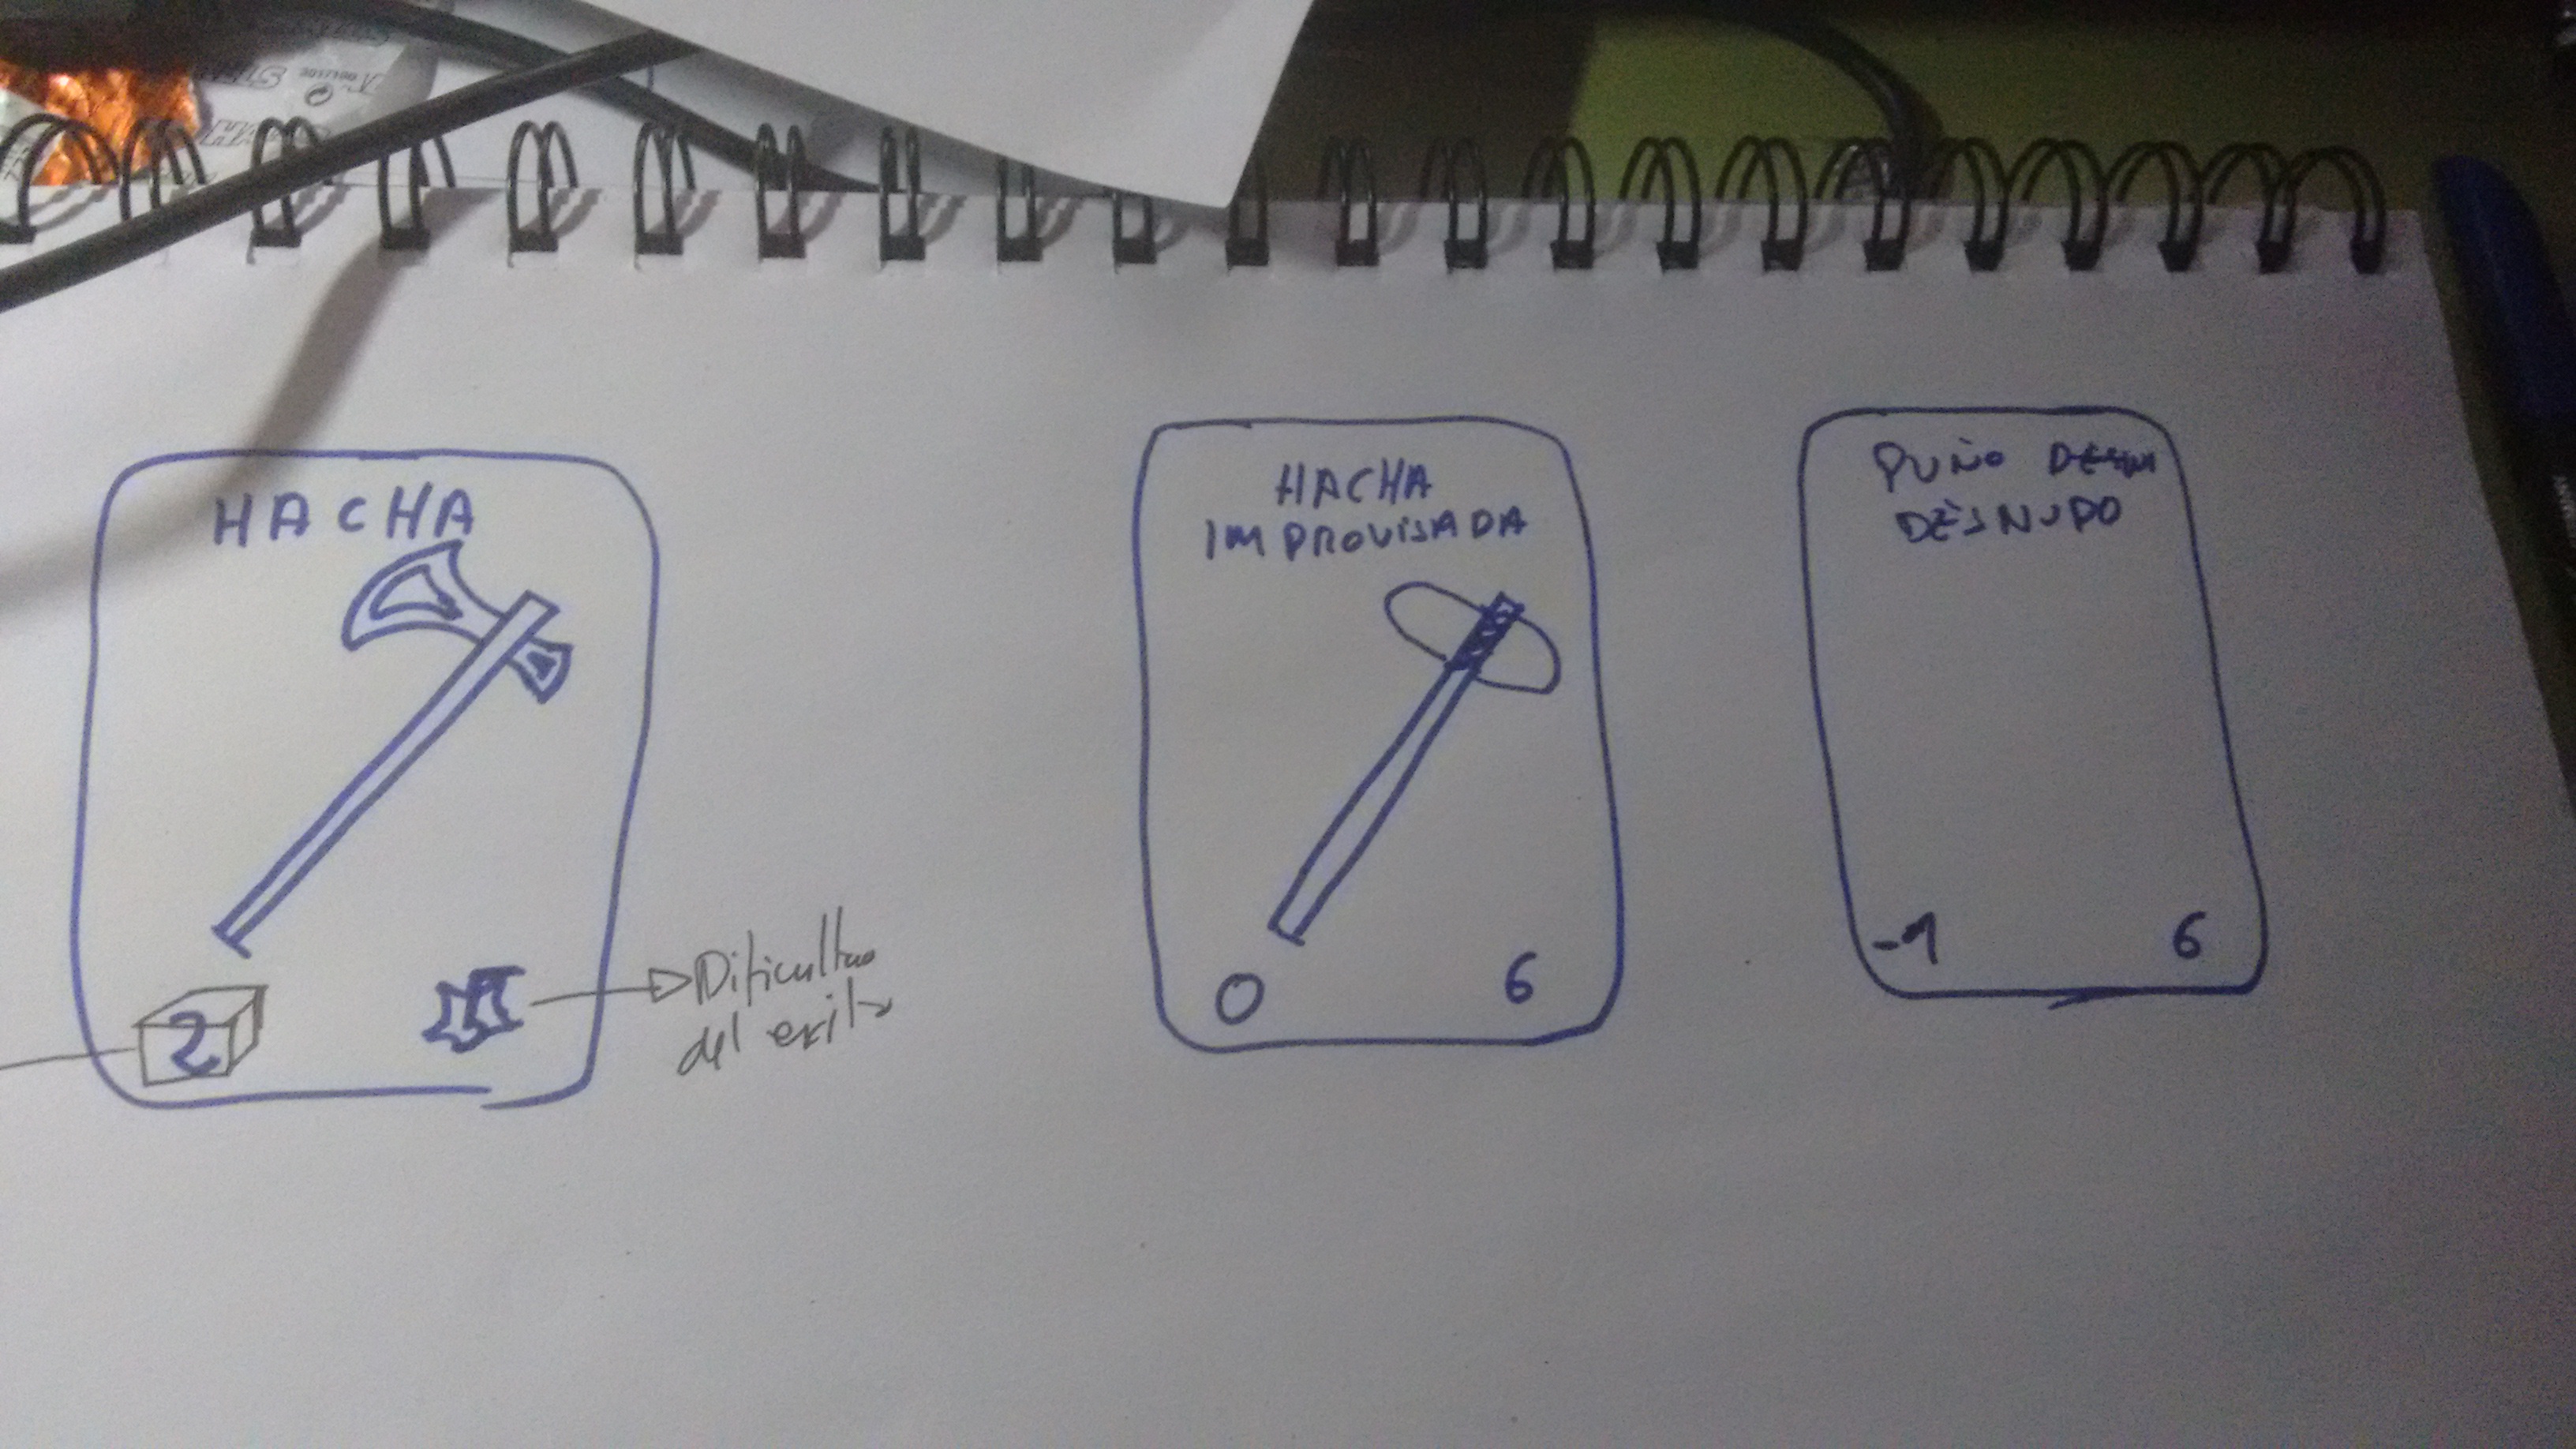 HACHA
2
Dificultad
del exito
HACHA
IMPROVISADA
0 6
PUÑO
DESNUDO
-1 6